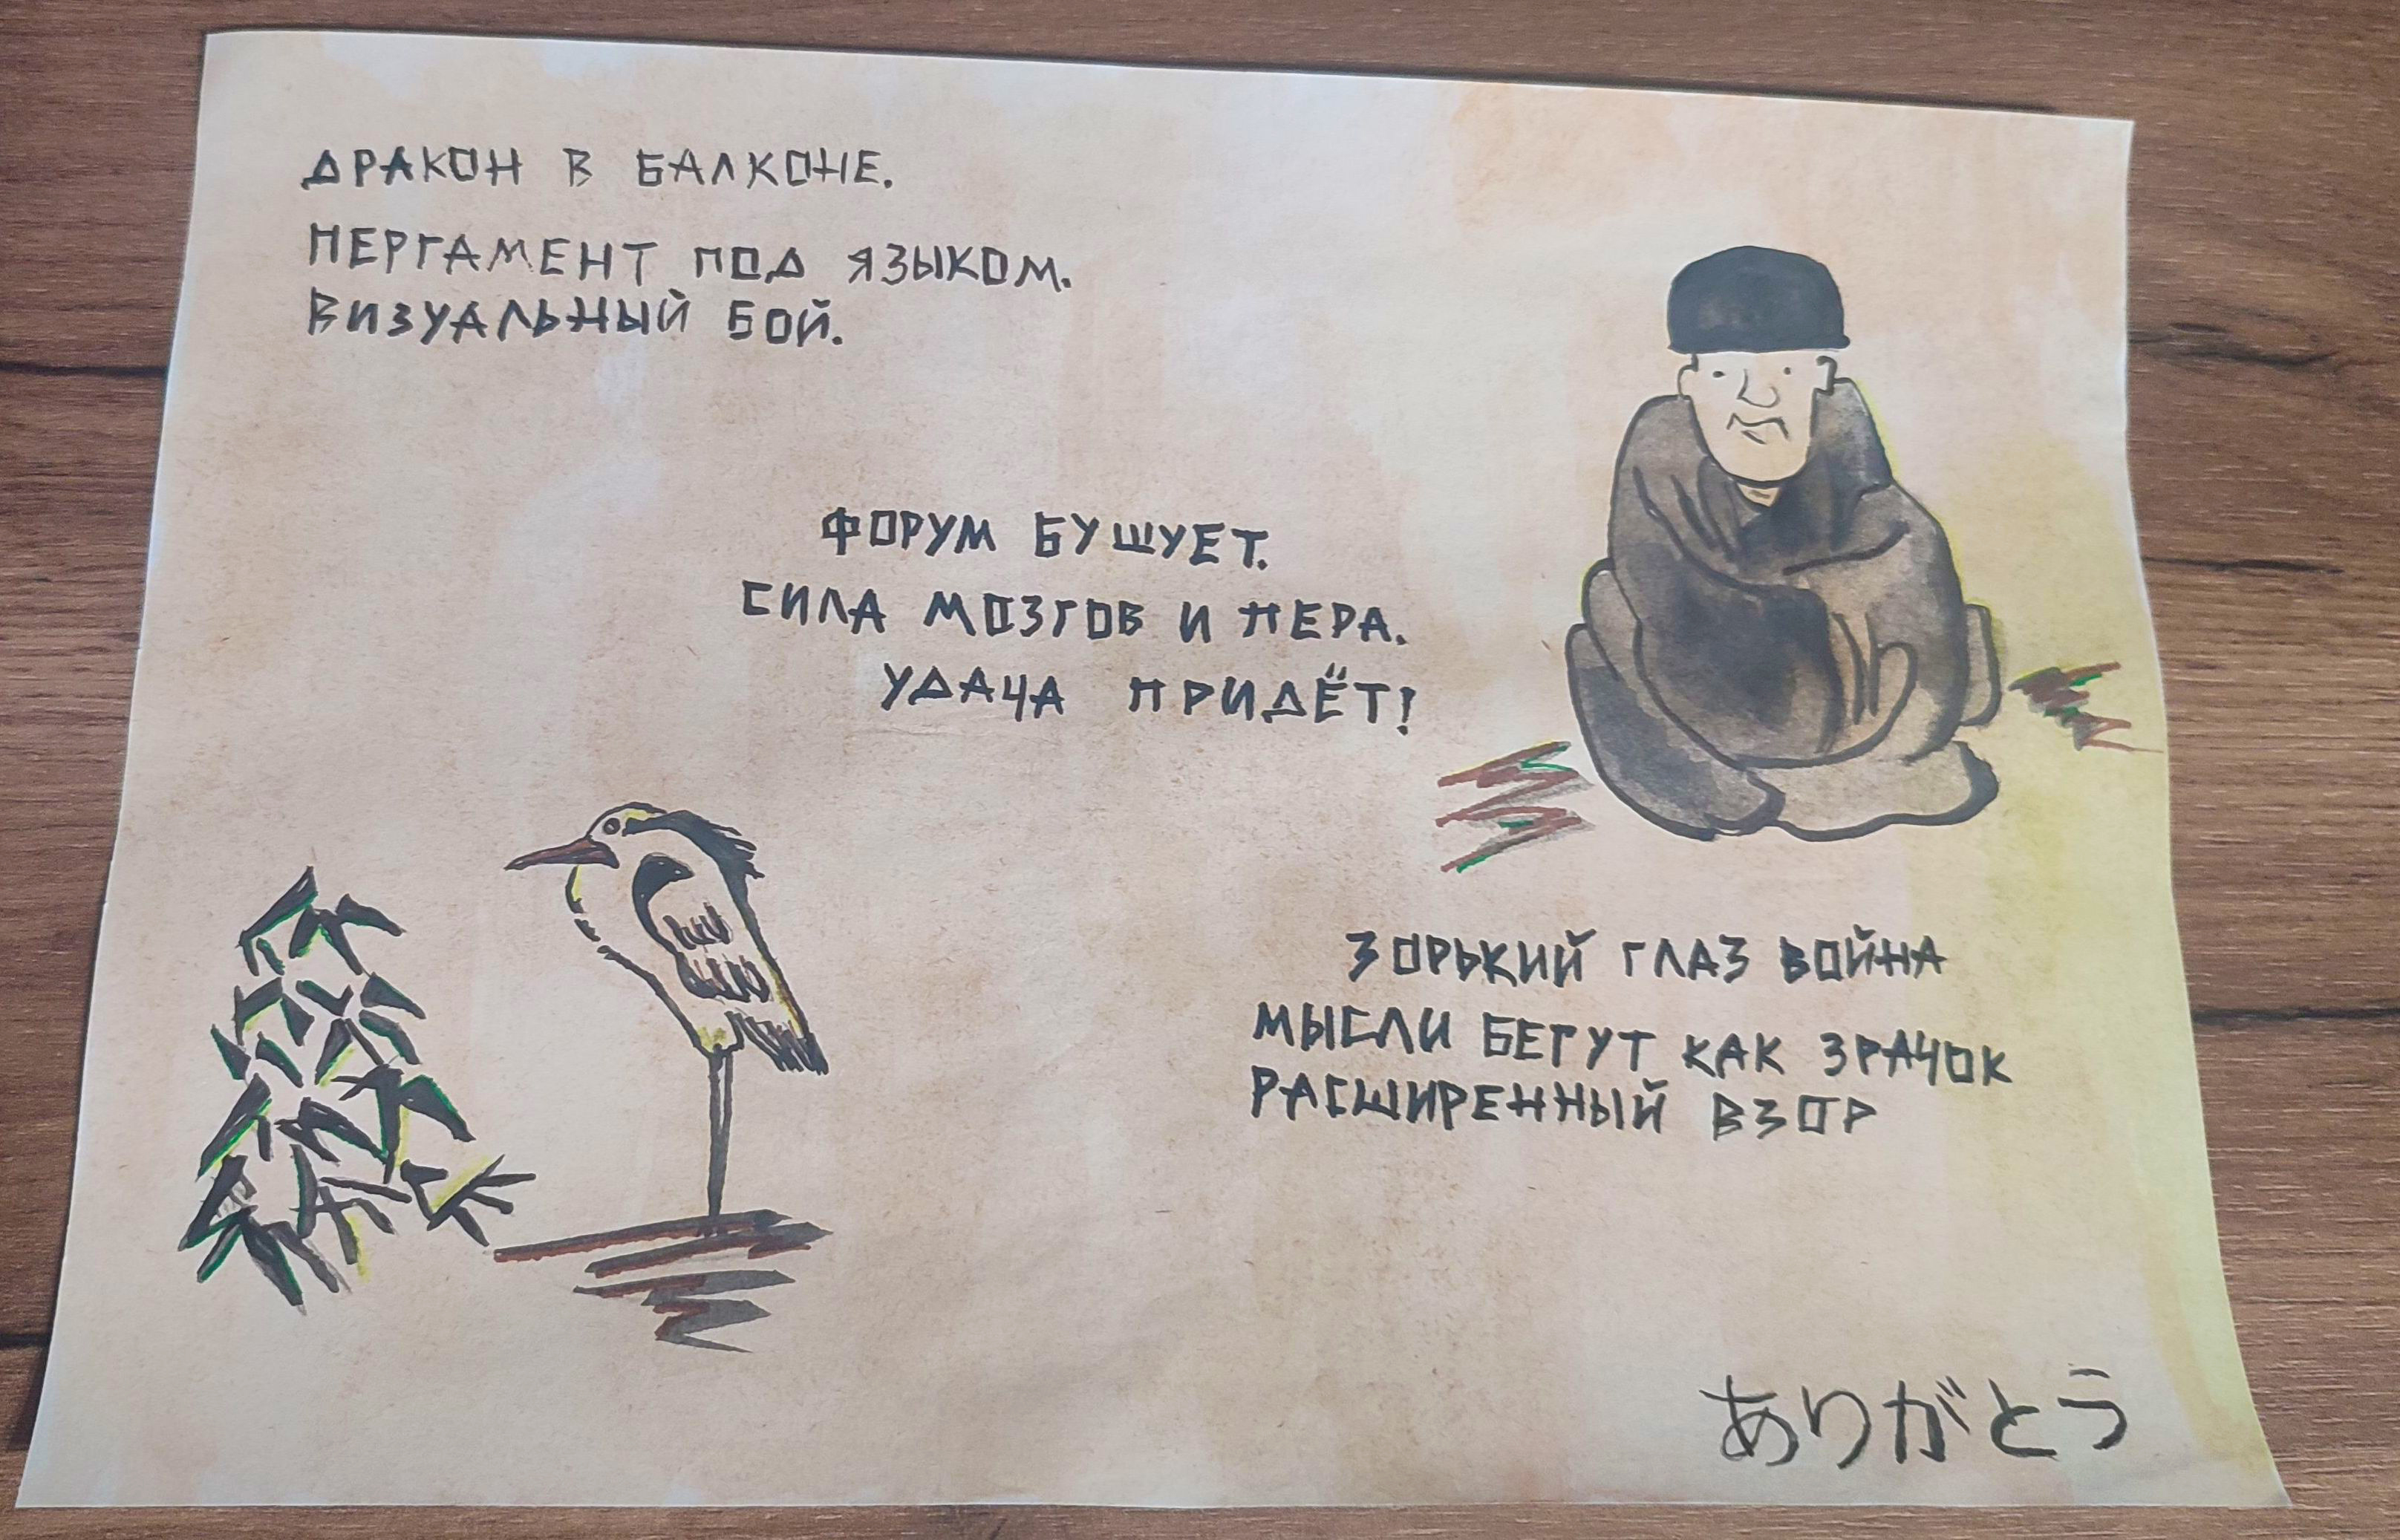 ДРАКОН В БАЛКОНЕ.
ПЕРГАМЕНТ ПОД ЯЗЫКОМ.
ВИЗУАЛЬНЫЙ БОЙ.
ФОРУМ БУШУЕТ.
СИЛА МОЗГОВ И ПЕРА.
УДАЧА ПРИДЁТ!
ЗОРЬКИЙ ГЛАЗ ВОЙНА
МЫСЛИ БЕГУТ КАК ЗРАЧОК
РАСШИРЕННЫЙ ВЗОР
ありがとう